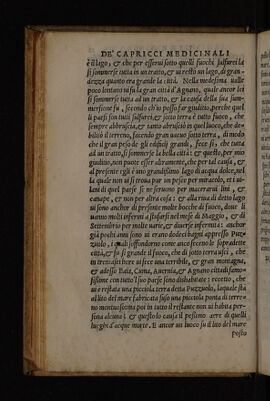 DE' CAPRICCI MEDICINALI
è il lago, & che per esserui sotto quelli fuochi sulfurei la
si sommerse tutta in un tratto, & ui restò un lago, di gran
dezza quanto era grande la città. Nella medesima ualle
poco lontano ui fu la gran città d'Agnano, quale ancor lei
si sommerse ad un tratto, & la causa della sua summer
sione fu, secondo ch'io posso far giuditio, perche quel
li paesi son tutti sulfurei, & sotto terra è tutto fuoco, che
sempre abbruscia, & tanto abrusciò in quel luoco, che de
bilitò il terreno, facendo gran uacuo sotto terra, di modo
che il gran peso de gli edificij grandi, fece sì, che tutta
ad un tratto, si sommerse la bella città: & questo, per mio
giuditio, non puote esser altramente, che per tal causa, &
al presente egli è uno grandissimo lago di acqua dolce, nel
la quale non ui si troua pur un pesce per miracolo, et i ui
lani di quel paese se ne seruono per macerarui lini, &
canape, & non per altra cosa: & alla riua di detto lago
ui sono anchor di presente molte bocche di fuoco, doue ui
uanno molti infermi a stufarsi nel mese di Maggio, & di
Settembrio per molte uarie, & diuerse infermità: anchor
già pochi anni sono ui erano dodeci bagni appresso Puz
zuolo, i quali soffondorno come anco fecero le sopradette
città, & fu sì grande il fuoco, che di sotto terra uscì, che
in tre dì &c. hore ui fece una terribile, & gran montagna,
& adesso Baia, Cuma, Auernia, & Agnano cittadi famo-
sissime con tutto il suo paese sono dishabitate: recetto, che
ui è restata una picciola terra detta Puzzuolo, laquale sta
al lito del mare fabricata sù so una picciola ponta di terre
no montuosissima poi in tutto il restante non ui habita per
sona alcuna: & questo lo causa il pessimo aere di quelli
luoghi d'acque morte. E ancor un luoco sù il lito del mare
posto